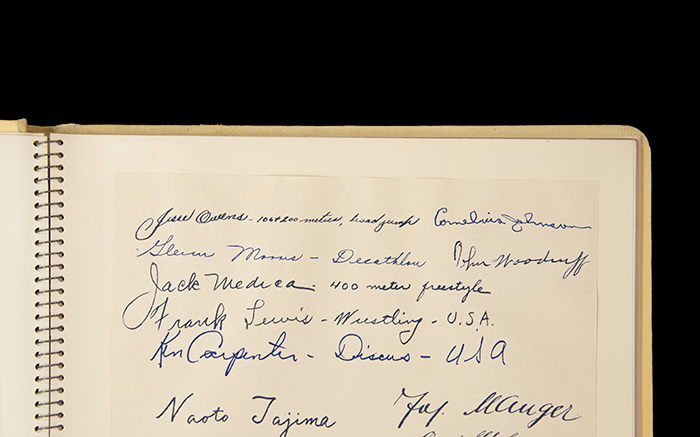 Jesse Owens - 100+200 meters, broad jump Cornelius Johnson
Glenn Morris - Decathlon John Woodruff
Jack Medica. 400 meter freestyle
Frank Lewis - Wrestling - U.S.A.
Ken Carpenter - Discus - USA
Naoto Tajima Jos. Manger